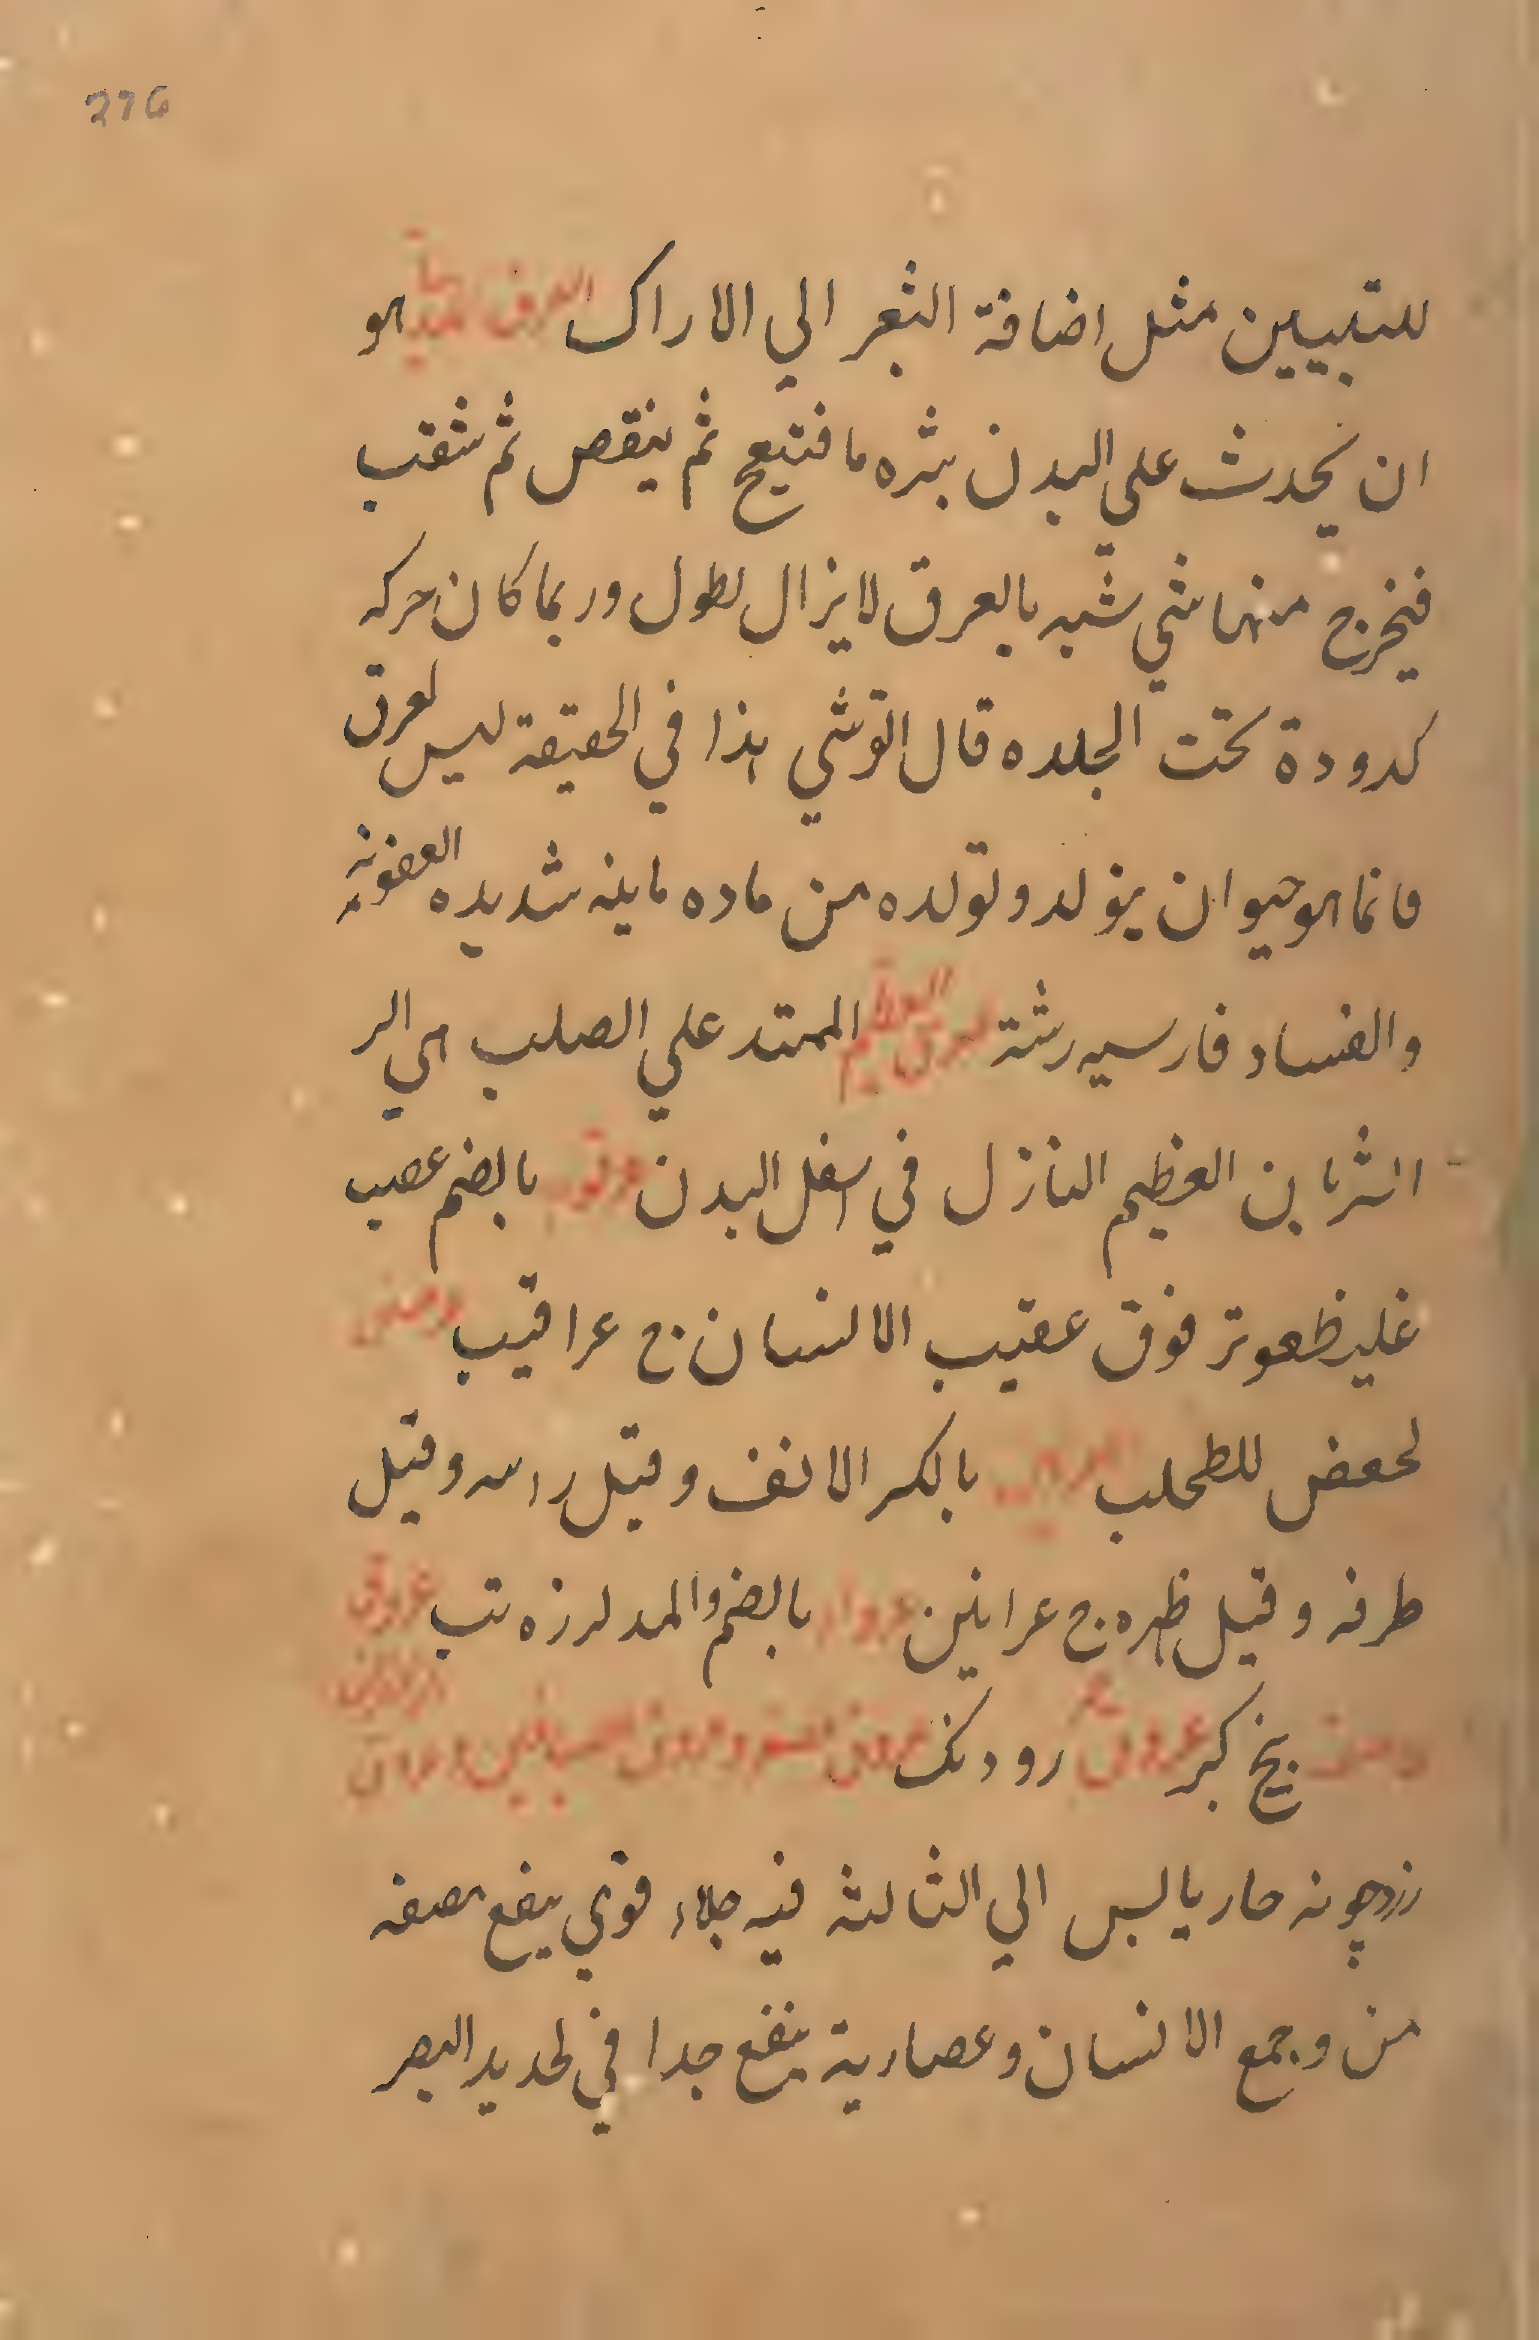 276
للتبيين مثل اضافة الثعر الي الاراك العرق المديني هو
ان يحدث علي البدن بثره ما فتيح ثم ينقص ثم شقب
فيخرج منها شي شبه بالعرق لا يزال لطول وربما كان حركه
كدودة تحت الجلده قال القرشي هذا في الحقيقة ليس لعرق
فانما هو حيوان يتولد وتولده من ماده ماينه شديده العفونه
والفساد فارسيه رشتة العرق العظيم الممتد علي الصلب هي الر
الشريان العظيم النازل في اسفل البدن عرقوب بالضم عصب
غليظ موتر فوق عقيب الانسان ج عراقيب
لحعض للطحلب العرنين بالكسر الانف وقيل راسه وقيل
طرفه وقيل ظهره ج عرانين عرواء بالضم والمد لرزه تب عروق
بيخ كبر عروق حمر رودنك عروق الصفر وعروق الصباغين وعروق الزعفران
زردچونه حار يابس الي الثالثه فيه جلاء قوي ينفع مصفه
من وجمع الانسان وعصارية ينفع جدا في لحديد البصر